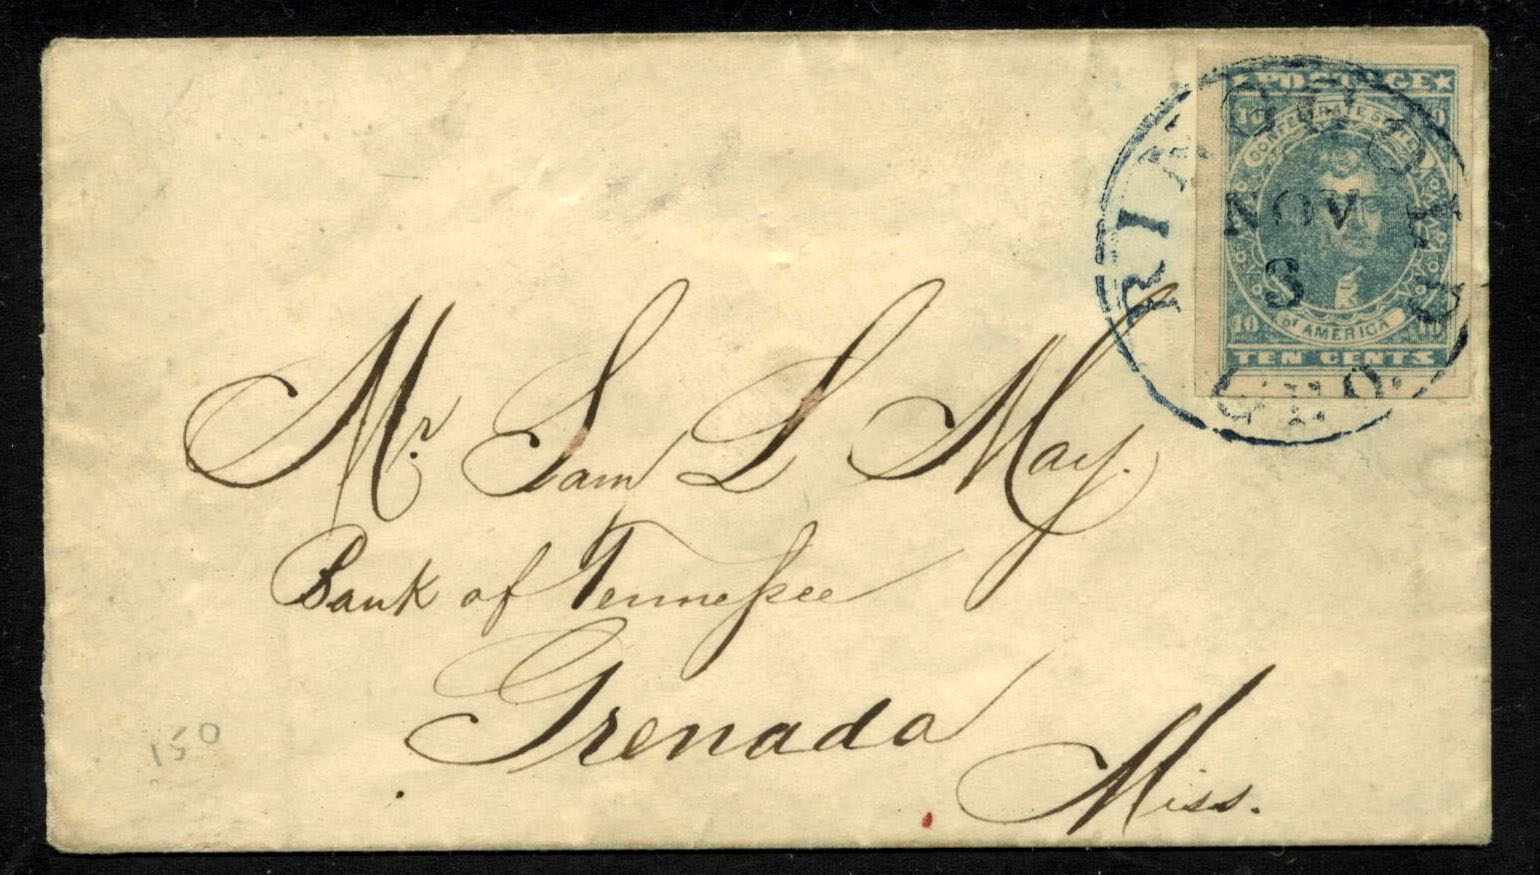 ★POSTAGE★
10 10
CONFEDERATE STATES
of AMERICA
10 10
TEN CENTS
RINGGOLD
NOV
3
GEO.
Mr. Sam L May.
Bank of Tennessee
Grenada
Miss.
150